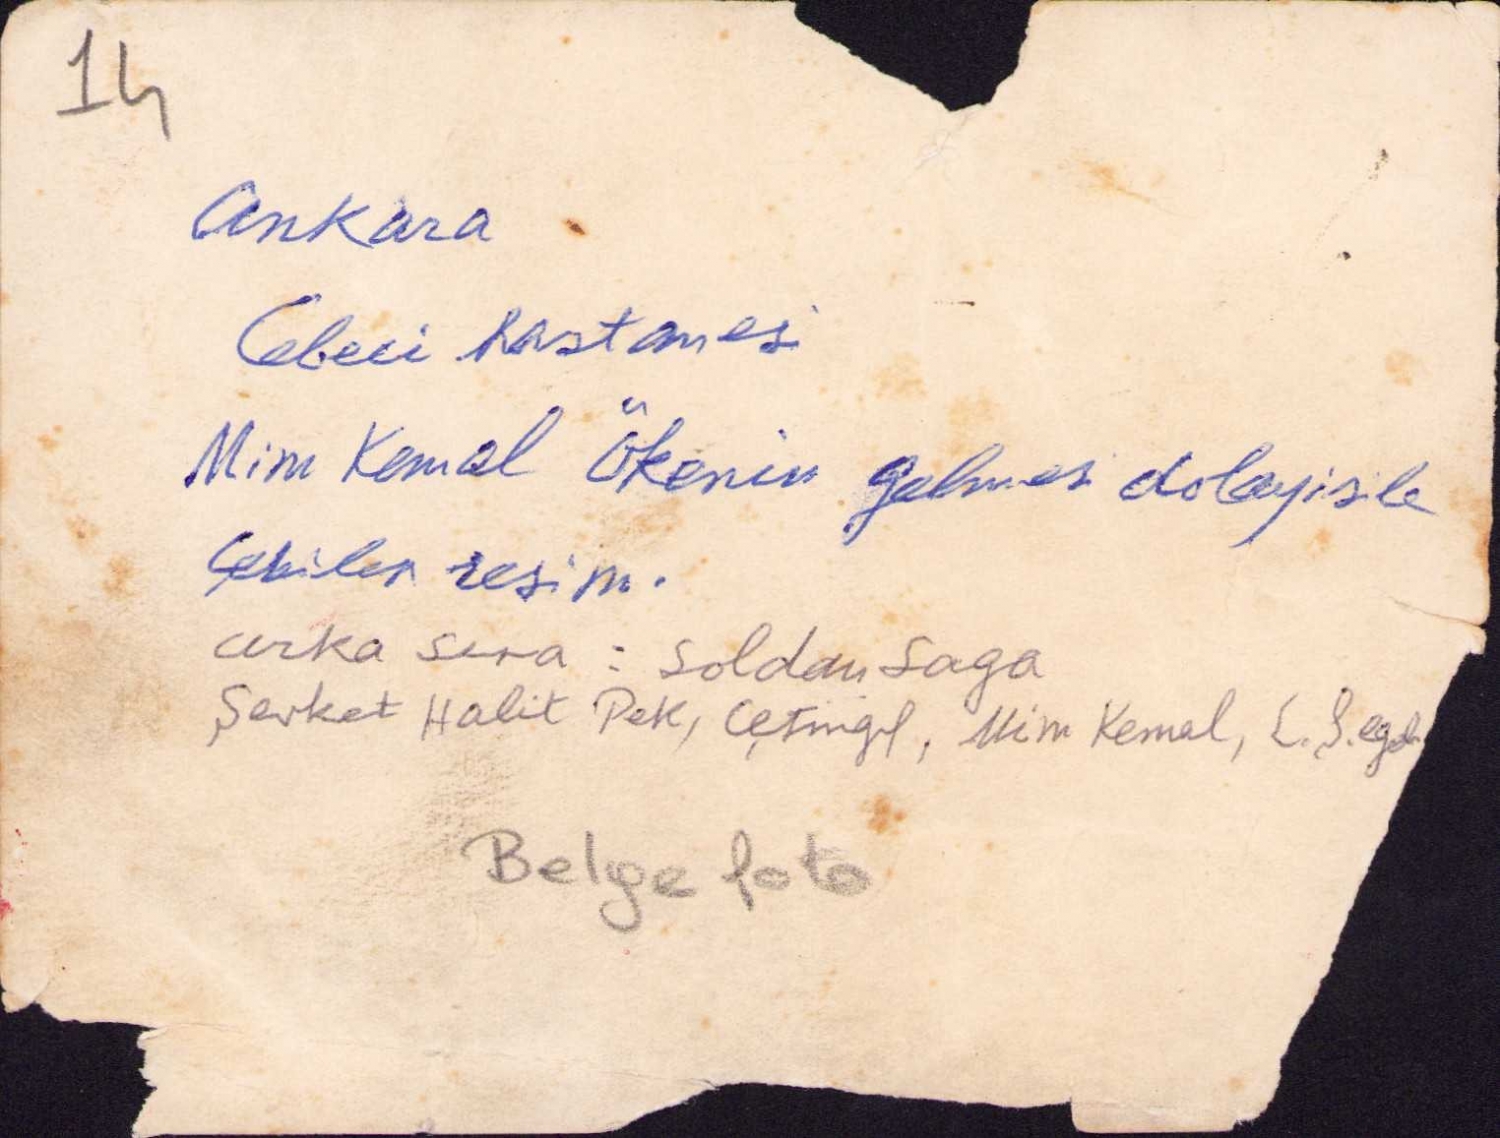 14
Ankara
Cebeci hastanesi
Mim Kemal Ökenin gelmesi dolayisile
Çekilen resim.
arka sıra : soldan saga
Şevket Halit Pek, Çetingil, Mim Kemal, L. Ş.
Belge foto